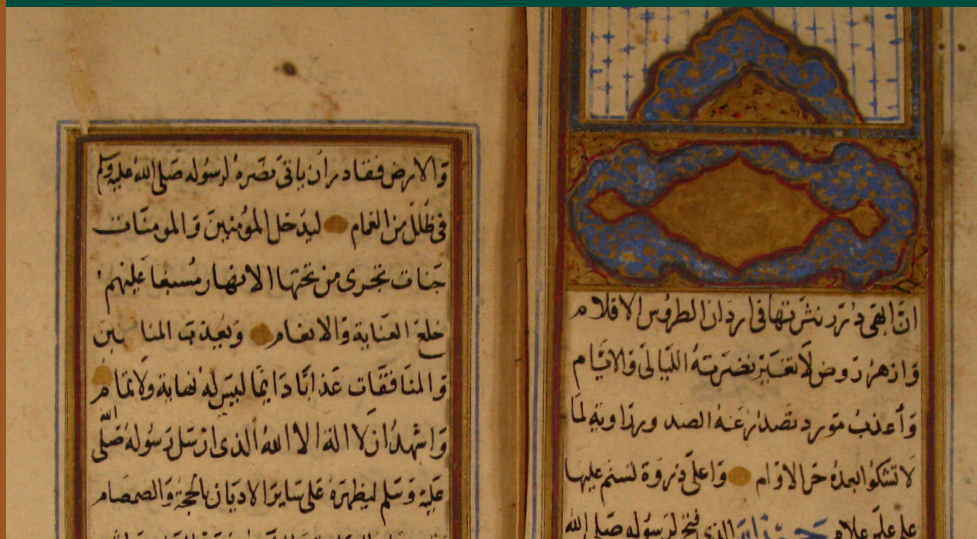 ان ابهى درر نثرتها فى اردان الطروس الاقلام
وازهر روض لا تغير نضرته الليالى والايام
وأعذب مورد تصدر عنه الصد ورواويه لما
لا تشكوا بعده حر الاوام واعلى ذروة تسنم عليها
علم علام حمد الله الذى فتح لرسوله صلى الله
والارض فقادر ان ياتى نصره لرسوله صلى الله عليه وسلم
فى ظلل من الغمام ليدخل المؤمنين والمومنات
جنات تجرى من تحتها الانهار مسبغا عليهم
خلع العناية والانعام ويعذب المنا فقين
والمنافقات عذابا دايما ليس له نهاية ولا تمام
واشهد ان لا اله الا الله الذى ارسل رسوله صلى الله
عليه وسلم ليظهره على ساير الاديان بالحجة والصمصام